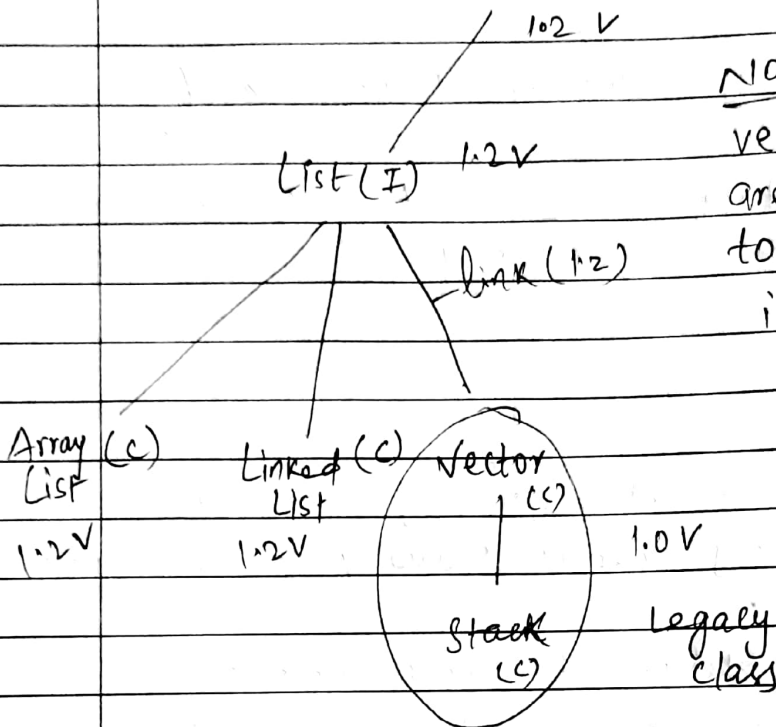 1.2 V
NO
List (I) 1.2 V
ve
are
to
link (1.2)
i
Array (C)
List
1.2 V
Linked (C)
List
1.2 V
Vector
(C)
1.0 V
Stack
(C)
Legacy
class